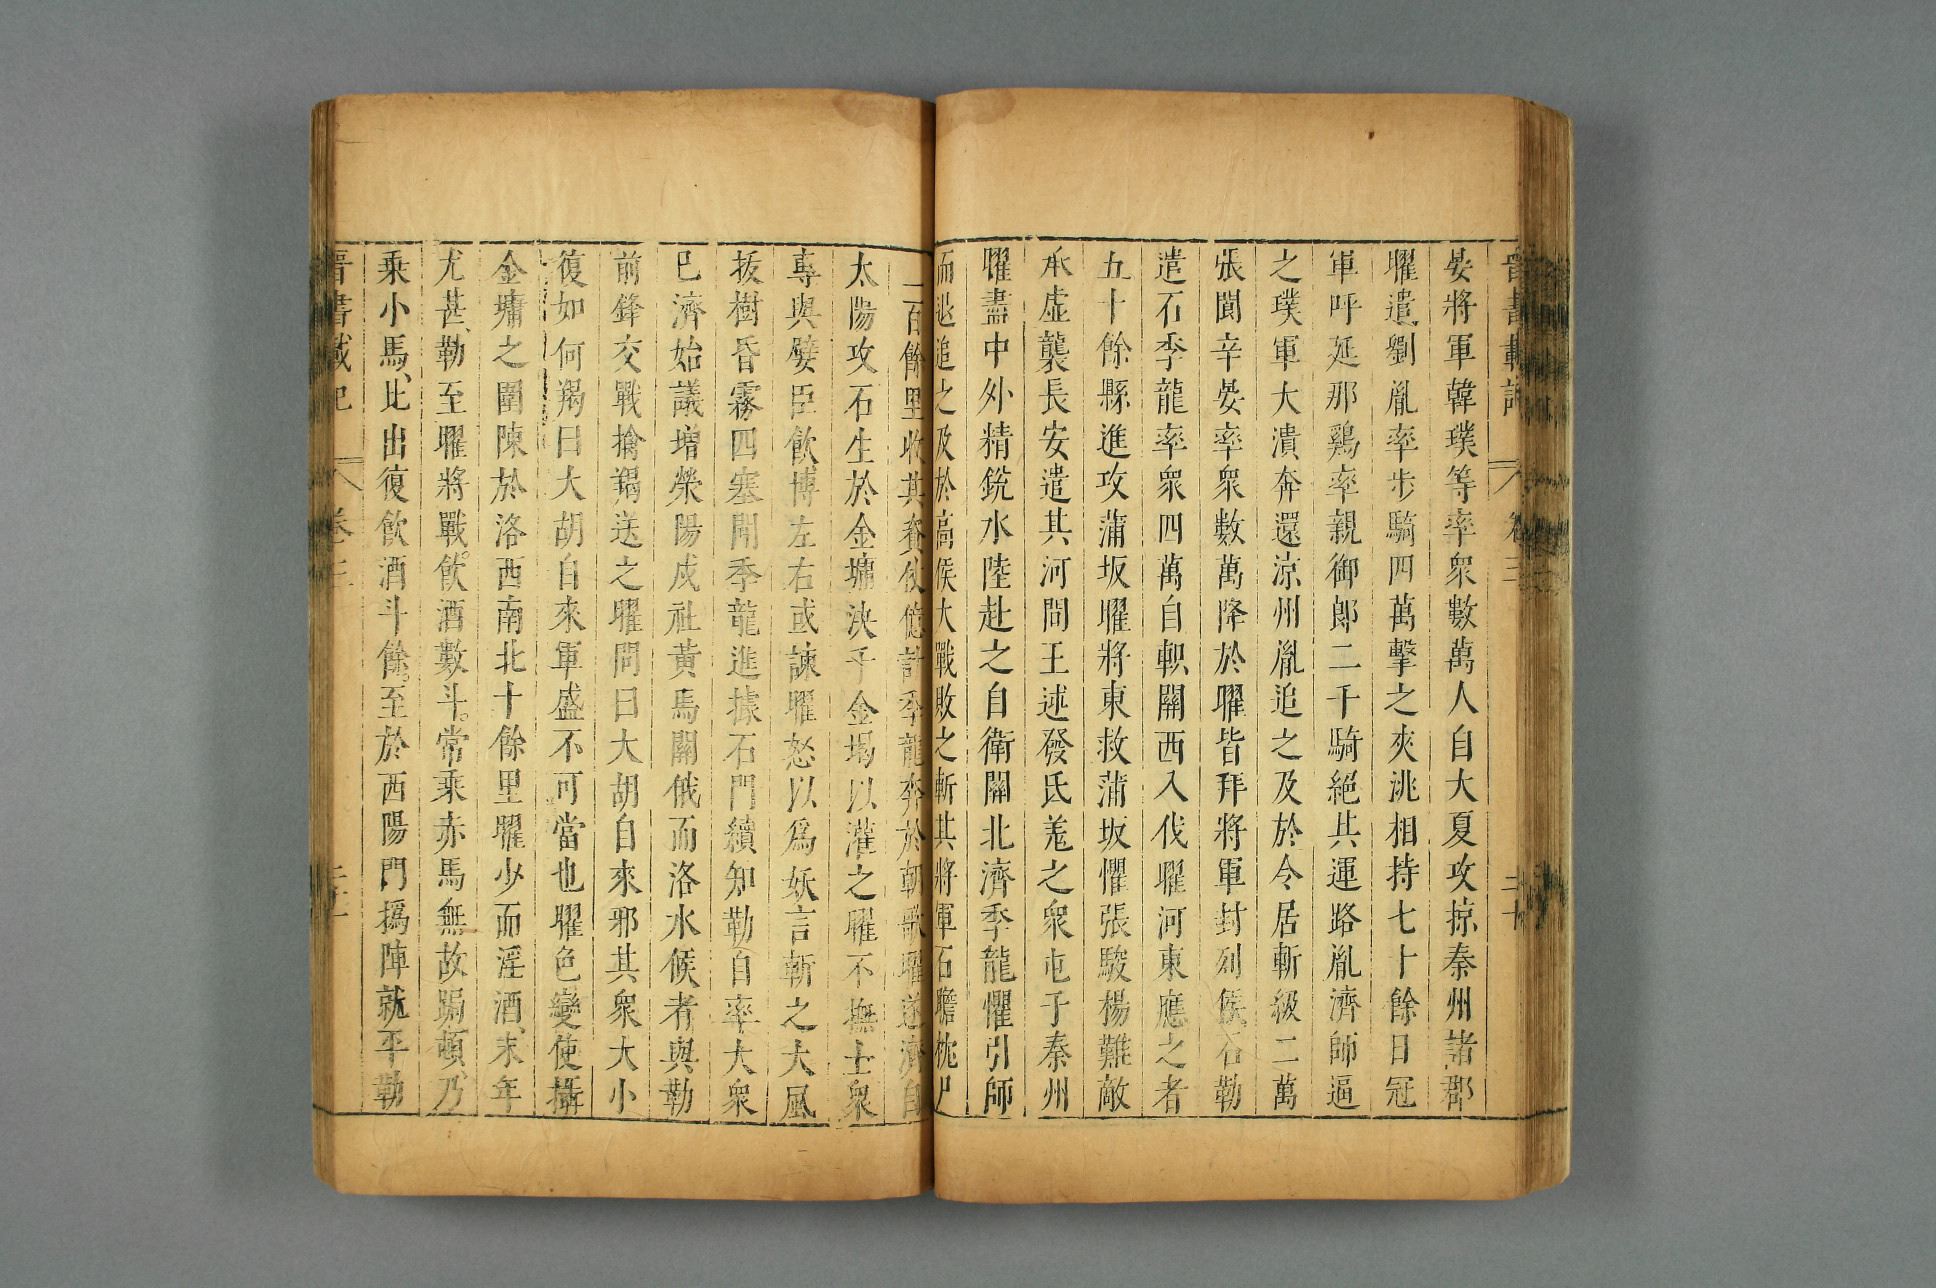 晉書載記 卷三 二十
晏將軍韓璞等率衆數萬人自大夏攻掠秦州諸郡
曜遣劉胤率步騎四萬擊之夾洮相持七十餘日冠
軍呼延那鷄率親御郎二千騎絕其運路胤濟師逼
之璞軍大潰奔還涼州胤追之及於令居斬級二萬
張閬辛晏率衆數萬降於曜皆拜將軍封列侯石勒
遣石季龍率衆四萬自軹關西入伐曜河東應之者
五十餘縣進攻蒲坂曜將東救蒲坂懼張駿楊難敵
承虛襲長安遣其河間王述發氐羌之衆屯于秦州
曜盡中外精銳水陸赴之自衛關北濟季龍懼引師
而退追之及於高候大戰敗之斬其將軍石瞻枕尸
二百餘里收其資仗億計季龍奔於朝歌曜遂濟自
太陽攻石生於金墉決千金堨以灌之曜不撫士衆
專與嬖臣飲博左右或諫曜怒以爲妖言斬之大風
拔樹昏霧四塞聞季龍進據石門續知勒自率大衆
已濟始議增滎陽戍杜黃馬關俄而洛水候者與勒
前鋒交戰擒羯送之曜問曰大胡自來邪其衆大小
復如何羯曰大胡自來軍盛不可當也曜色變使攝
金墉之圍陳於洛西南北十餘里曜少而淫酒末年
尤甚勒至曜將戰飲酒數斗常乘赤馬無故跼頓乃
乘小馬比出復飲酒斗餘至於西陽門撝陣就平勒
晉書載記 卷三